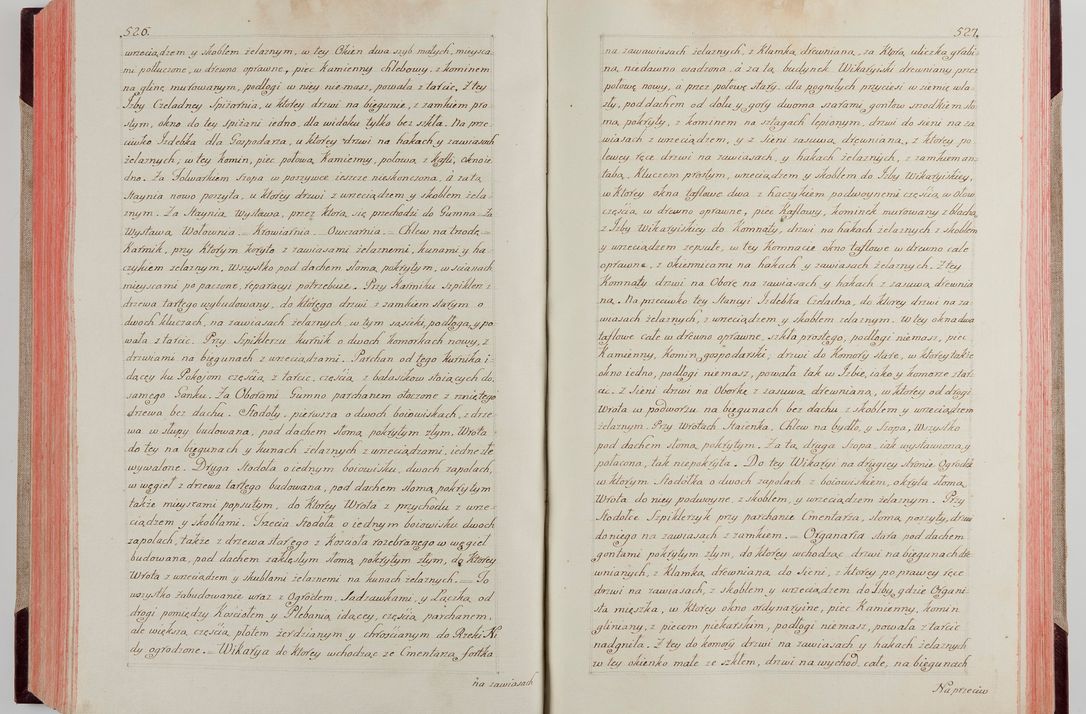 526.
wrzeciądzem y skoblem żelaznym, w tey Okien dwa szyb małych, mieysca-
mi potłuczone, w drewno oprawne, piec Kamienny chlebowy, z kominem
na glinę murowanym, podłogi w niey nie masz, powała z tarcic. Z tey
Izby Czeladney Spiżarnia, u ktorey drzwi na biegunie, z zamkiem pro-
stym, okno do tey spiżarni iedno, dla widoku tylko bez szkła. Na prze-
ciwko Izdebka dla Gospodarza, u ktorey drzwi na hakach y zawiasach
żelaznych, w tey komin, piec połową Kamienny, połową z Kafli, okno ie-
dno. Za Folwarkiem Szopa w poszywce ieszcze nieskonczona, a za tą
Staynia nowo poszyta, u ktorey drzwi z wrzeciądzem y skoblem żela-
znym. Za Staynią Wystawa, przez ktorą się przechodzi do Gumna. Za
Wystawą Wołownia. = Krowiarnia. = Owczarnia. = Chlew na trzodę =
Karmik, przy ktorym koryto z zawiasami żelaznemi, kunami y ha-
czykiem żelaznym. Wszystko pod dachem słomą pokrytym, w ścianach
mieyscami po paczone, reparacyi potrzebuie. Przy Karmiku Szpiklerz z
drzewa tartego wybudowany, do ktorego drzwi z zamkiem starym o
dwoch kluczach, na zawiasach żelaznych, w tym sąsieki, podłoga, y po-
wała z tarcic. Przy Szpiklerzu kurnik o dwoch komorkach nowy, z
drzwiami na biegunach z wrzeciądzami. Parchan od tego kurnika i-
dący ku Pokoiom częścią z tarcic, częścią z balasikow stoiących do
samego Ganku. Za Oborami Gumno parchanem otoczone z rzniętego
drzewa bez dachu. Stodoły: pierwsza o dwoch boiowiskach, z drze-
wa w słupy budowana, pod dachem słomą pokrytym złym, Wrota
do tey na biegunach y kunach żelaznych z wrzeciądzami, iedne złe
wywalone. Druga Stodoła o iednym boiowisku, dwoch zapolach,
w węgieł z drzewa tartego budowana, pod dachem słomą pokrytym
także mieyscami popsutym, do ktorey Wrota z przychodu z wrze-
ciądzem y skoblami. Trzecia Stodoła o iednym boiowisku dwoch
zapolach, także z drzewa starego z kościoła rozebranego w węgieł
budowana, pod dachem zaklęsłym słomą pokrytym złym, do ktorey
Wrota z wrzeciądzem y skublami żelaznemi na kunach żelaznych. = To
wszystko zabudowanie wraz z Ogrodem, Sadzawkami, y Łączką od
drogi pomiędzy Kościołem y Plebanią idącey, częścią parchanem,
ale większą częścią płotem żerdzianym y chrościanym do Rzeki Ki-
dy ogrodzone. = Wikarya do ktorey wchodząc ze Cmentarza, fortka
na zawiasach
527.
na zawawiasach żelaznych, z klamką drewnianą, za ktorą uliczka grabi-
na, niedawno osadzona, a za tą budynek Wikaryiski drewniany przez
połowę nowy, a przez połowę stary, dla pognitych przyciesi w ziemię wla-
zły, pod dachem od dołu y gory dwoma szarami gontow środkiem sło-
mą pokryty, z kominem na sztagach lepionym, drzwi do sieni na za-
wiasach z wrzeciądzem, y z Sieni zasuwą drewnianą, z ktorey po
lewey ręce drzwi na zawiasach, y hakach żelaznych, z zamkiem an-
tabą. Kluczem prostym, wrzeciądzem y skoblem do Izby Wikaryiskiey,
w ktorey okna taflowe dwa z haczykiem podwoynemi częścią w ołow
częścią w drewno oprawne, piec Kaflowy, kominek murowany z blachą,
z Izby Wikaryiskiey do Komnaty, drzwi na hakach żelaznych z skoblem
y wrzeciądzem zepsute, w tey Komnacie okno taflowe w drewno całe
oprawne, z okiennicami na hakach y zawiasach żelaznych. Z tey
Komnaty drzwi na Oborę na zawiasach y hakach z zasuwą drewnia-
ną. Na przeciwko tey Stancyi Izdebka Czeladna, do ktorey drzwi na za-
wiasach żelaznych, z wrzeciądzem y skoblem żelaznym. W tey okna dwa
taflowe całe w drewno oprawne, szkła prostego, podłogi nie masz, piec
Kamienny, komin gospodarski, drzwi do Komory stare, w ktorey także
okno iedno, podłogi nie masz, powała tak w Izbie, iako y komorze z tar-
cic. z Sieni drzwi na Oborkę z zasuwą drewnianą, w ktorey od drogi
Wrota w podworzu na biegunach bez dachu z skoblem y wrzeciądzem
żelaznym. Przy Wrotach Staienka, Chlew na bydło, y Szopa, Wszystko
pod dachem słomą pokrytym. Za tą druga Szopa, iak wystawiona, y
połacona, tak niepokryta. Do tey Wikaryi na drugiey stronie Ogrodek
w ktorym Stodołka o dwoch zapolach z boiowiskiem, okryta słomą
Wrota do niey podwoyne, z skoblem, y wrzeciądzem żelaznym. Przy
Stodołce Szpiklerzyk przy parchanie Cmentarza, słomą poszyty, drzwi
do niego na zawiasach z zamkiem. = Organaria stara pod dachem
gontami pokrytym złym, do ktorey wchodząc drzwi na biegunach dre-
wnianych, z klamką drewnianą do Sieni, z ktorey po prawey ręce
drzwi na zawiasach, z skoblem y wrzeciądzem do Izby, gdzie Organi-
sta mieszka, w ktorey okno ordynaryine, piec Kamienny, komin
gliniany, z piecem piekarskim, podłogi nie masz, powała z tarcic
nadgniła. Z tey do komory drzwi na zawiasach y hakach żelaznych
w tey okienko małe ze szkłem, drzwi na wychod całe, na biegunach
Naprzeciw